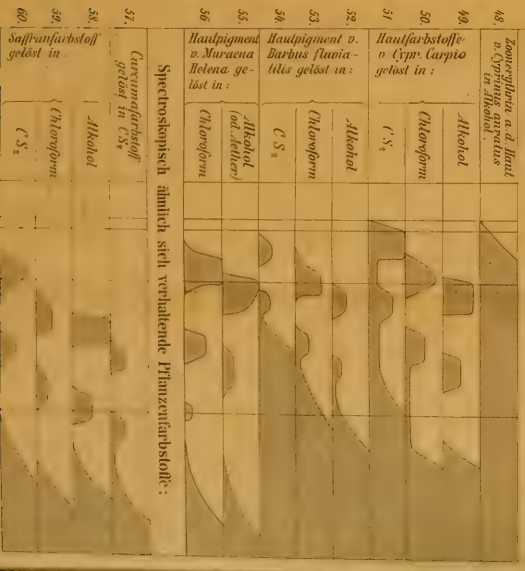 48.
Zoonerythrin a. d. Haut
v. Cyprinus auratus
in Alkohol.
Hautfarbstoffe
v. Cypr. Carpio
gelöst in:
49.
Alkohol
50.
Chloroform
51
C S₂
Hautpigment v.
Barbus fluvia-
tilis gelöst in:
52.
Alkohol
53.
Chloroform
54.
C S₂
Hautpigment
v. Muraena
Helena ge-
löst in:
55.
Alkohol
(od. Aether)
56
Chloroform
Spectroskopisch ähnlich sich verhaltende Pflanzenfarbstoffe:
57.
Curcumafarbstoff
gelöst in C S₂
Saffranfarbstoff
gelöst in
58.
Alkohol
59.
Chloroform
60.
C S₂